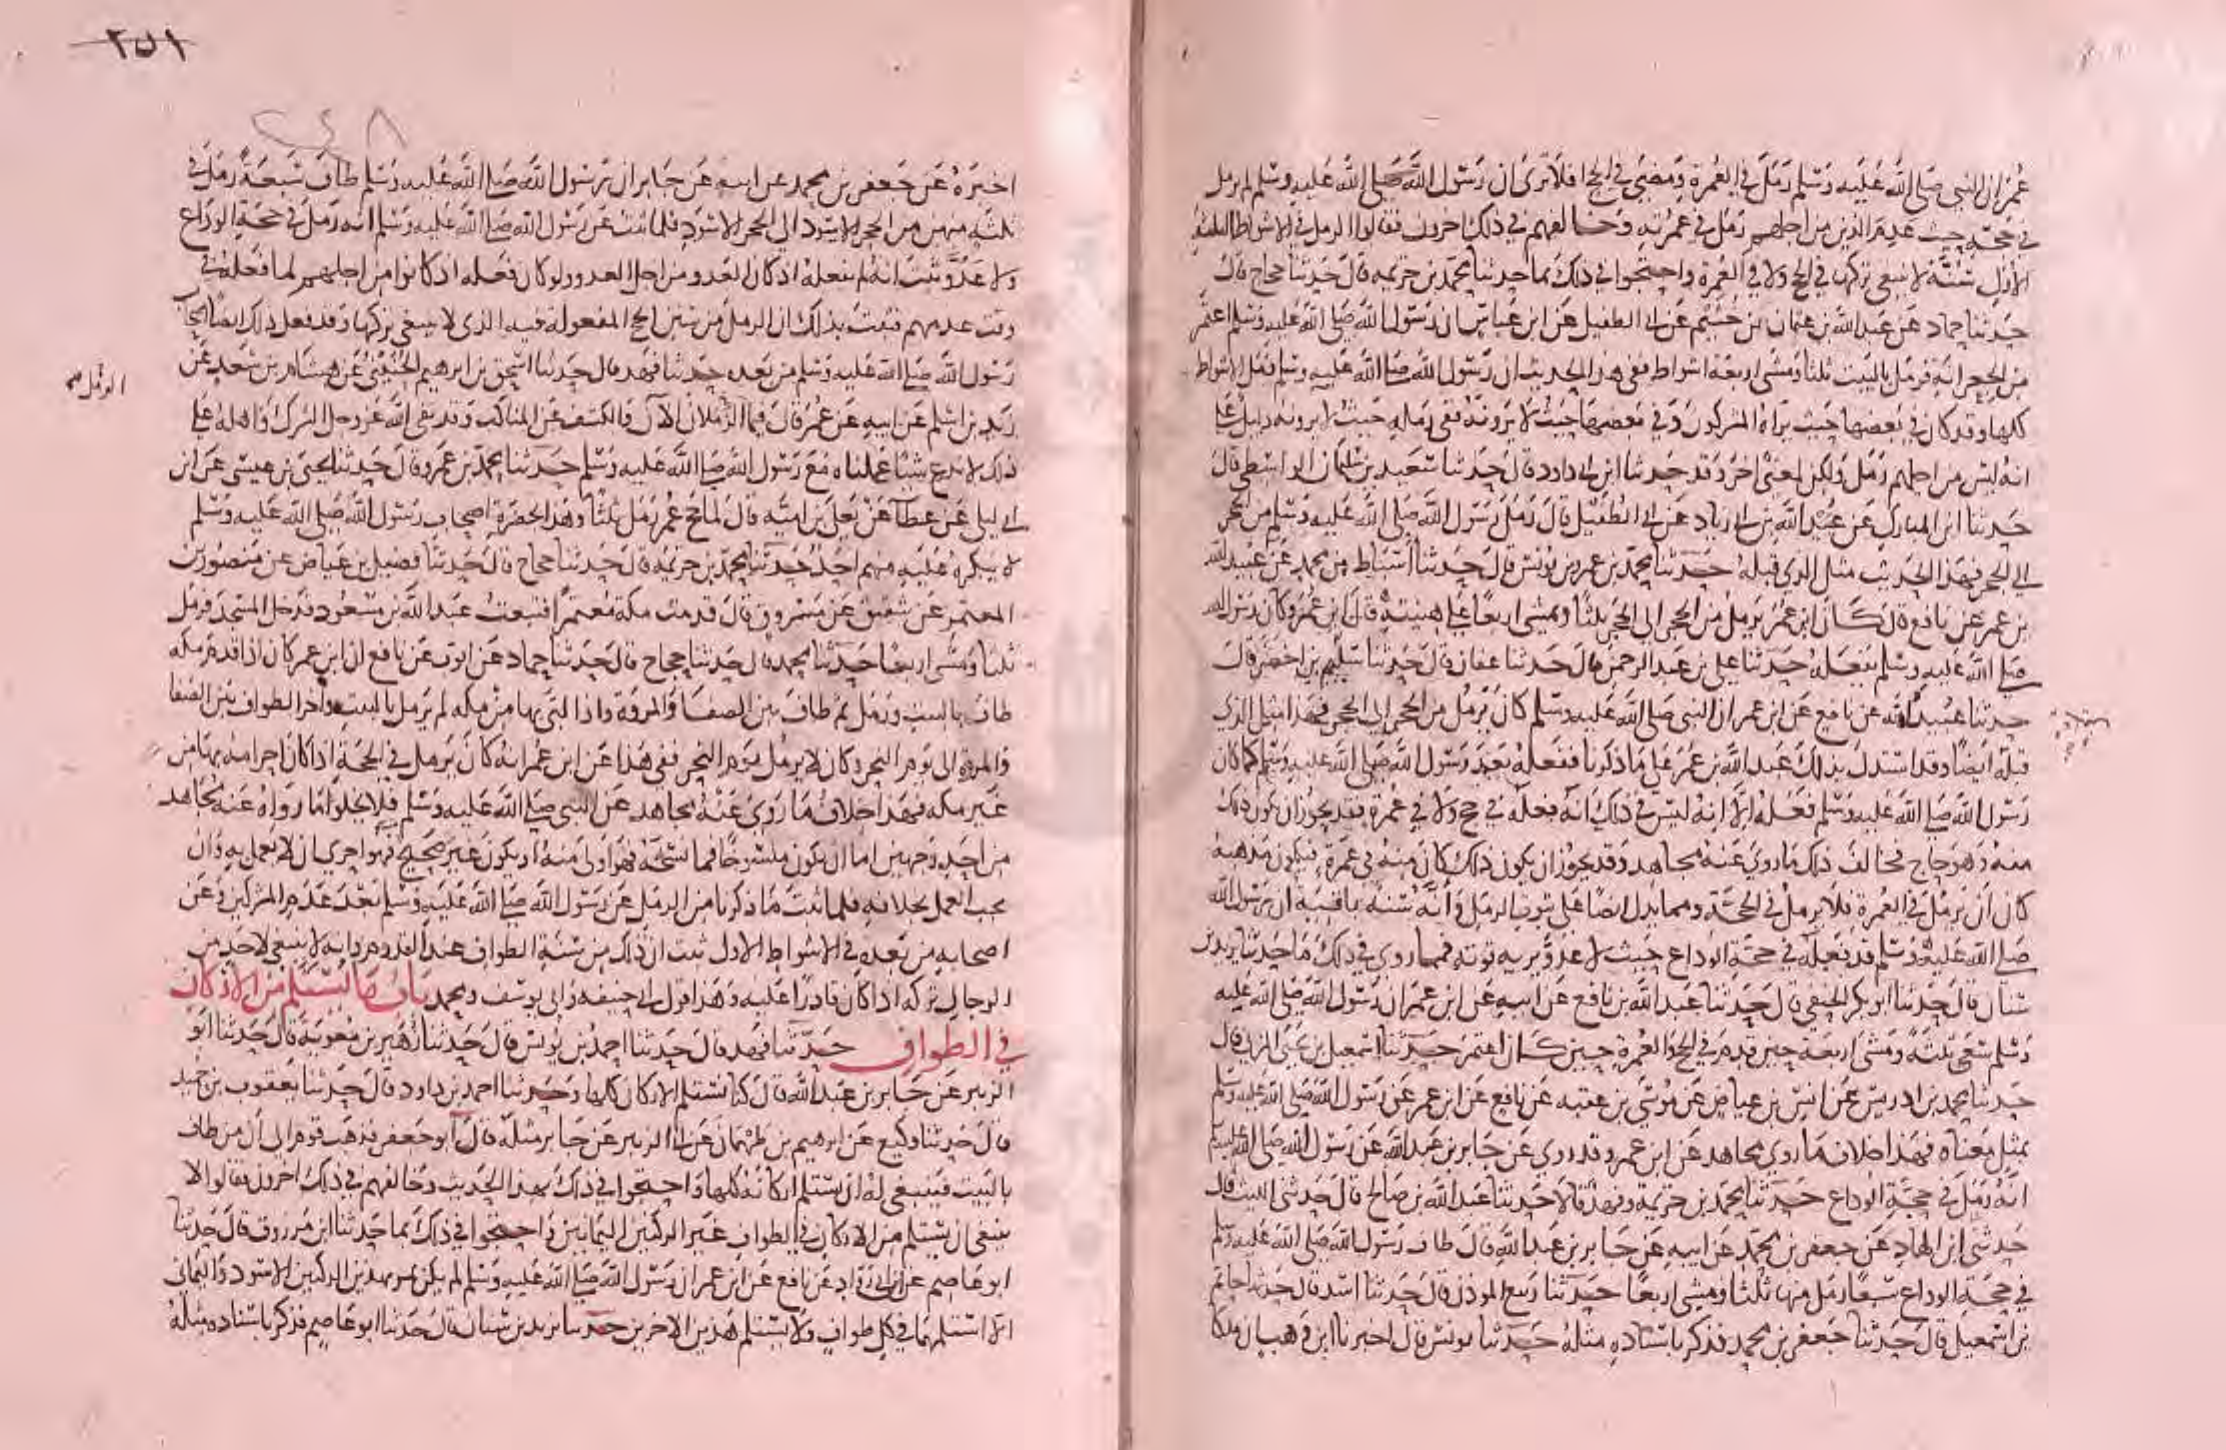 عمر ان النبي صلى الله عليه وسلم رمل في العمرة ومضى في الحج افلا ترى ان رسول الله صلى الله عليه وسلم لم يرمل
في حجته حيث عدم الذين من اجلهم رمل في عمرته وخالفهم في ذلك اخرون فقالوا الرمل في الاشواط الثلثة
الأول سنة لا ينبغي تركها في الحج ولا في العمرة واحتجوا في ذلك بما حدثنا محمد بن خزيمه قال حدثنا حجاج قال
حدثنا حماد عن عبد الله بن عثمان بن خثيم عن ابي الطفيل عن ابن عباس ان رسول الله صلى الله عليه وسلم اعتمر
من الجعرانة فرمل بالبيت ثلثا ومشى اربعة اشواط ففي هذا الحديث ان رسول الله صلى الله عليه وسلم رمل الاشواط
كلها وقد كان في بعضها حيث يراه المشركون وفي بعضها حيث لا يرونه ففي رمله حيث لا يرونه دليل على
انه ليس من اجلهم رمل ولكن لمعنى اخر وقد حدثنا ابن ابي داود قال حدثنا سعيد بن سليمان الواسطي قال
حدثنا ابن المبارك عن عبيد الله بن ابي زياد عن ابي الطفيل قال رمل رسول الله صلى الله عليه وسلم من الحجر
الى الحجر فهذا الحديث مثل الذي قبله حدثنا محمد بن عمرو بن يونس قال حدثنا اسباط بن محمد عن عبيد الله
بن عمر عن نافع قال كان ابن عمر يرمل من الحجر الى الحجر ثلثا ويمشي اربعا على هينته قال ابن عمر وكان رسول الله
صلى الله عليه وسلم يفعله حدثنا علي بن عبد الرحمن قال حدثنا عفان قال حدثنا سليم بن اخضر قال
حدثنا عبيد الله عن نافع عن ابن عمر ان النبي صلى الله عليه وسلم كان يرمل من الحجر الى الحجر فهذا مثل الذي
قبله ايضا وقد استدل بذلك عبد الله بن عمر على ما ذكرنا ففعله بعد رسول الله صلى الله عليه وسلم كما كان
رسول الله صلى الله عليه وسلم فعله الا انه ليس في ذلك انه فعله في حج ولا في عمرة فقد يجوز ان يكون ذلك
منه وهو حاج فخالف ذلك ما روي عنه مجاهد وقد يجوز ان يكون ذلك كان منه في عمرة فيكون مذهبه
كان أن يرمل في العمرة فلا يرمل في الحجة ومما يدل ايضا على ثبوت الرمل وأنه سنة باقية ان رسول الله
صلى الله عليه وسلم قد فعله في حجة الوداع حيث لا عدو يريه قوته فمما روي في ذلك ما حدثنا يزيد بن
سنان قال حدثنا ابو بكر الحنفي قال حدثنا عبد الله بن نافع عن ابيه عن ابن عمر ان رسول الله صلى الله عليه
وسلم سعى ثلثة ومشى اربعة حين قدم في الحج والعمرة حين كان اعتمر حدثنا اسمعيل بن يحيى المزني قال
حدثنا محمد بن ادريس عن انس بن عياض عن موسى بن عقبه عن نافع عن ابن عمر عن رسول الله صلى الله عليه وسلم
بمثل معناه فهذا خلاف ما روى مجاهد عن ابن عمر وقد روي عن جابر بن عبد الله عن رسول الله صلى الله عليه وسلم
انه رمل في حجة الوداع حدثنا محمد بن خزيمة وفهد قالا حدثنا عبد الله بن صالح قال حدثني الليث قال
حدثني ابن الهاد عن جعفر بن محمد عن ابيه عن جابر بن عبد الله قال طاف رسول الله صلى الله عليه وسلم
في حجة الوداع سبعا رمل منها ثلثا ومشى اربعا حدثنا ربيع المؤذن قال حدثنا اسد قال حدثنا حاتم
بن اسمعيل قال حدثنا جعفر بن محمد فذكر باسناده مثله حدثنا يونس قال اخبرنا ابن وهب ان ملكا
٢٥١
٢٤٨
اخبره عن جعفر بن محمد عن ابيه عن جابر ان رسول الله صلى الله عليه وسلم طاف سبعة رمل في
ثلثه منهن من الحجر الاسود الى الحجر الاسود فلما ثبت عن رسول الله صلى الله عليه وسلم انه رمل في حجة الوداع
ولا عدو ثبت انه لم يفعله اذ كان العدو من اجل العدو ولو كان فعله اذ كانوا من اجلهم لما فعله في
وقت عدمهم فثبت بذلك ان الرمل من سنن الحج المفعولة فيه الذي لا ينبغي تركها وقد فعل ذلك ايضا اصحاب
رسول الله صلى الله عليه وسلم من بعده حدثنا فهد قال حدثنا اسحق بن ابرهيم الحنيني عن هشام بن سعد عن
زيد بن اسلم عن ابيه عن عمر قال فيما الرملان الآن والكشف عن المناكب وقد نفى الله عز وجل الشرك واهله على
ذلك لا ندع شيئا عملناه مع رسول الله صلى الله عليه وسلم حدثنا محمد بن عمرو قال حدثنا يحيى بن عيسى عن ابن
ابي ليلى عن عطآ عن يعلى بن اميه قال لما حج عمر رمل ثلثا وهذا بحضرة اصحاب رسول الله صلى الله عليه وسلم
لا ينكره عليه منهم احد حدثنا محمد بن خزيمه قال حدثنا حجاج قال حدثنا فضيل بن عياض عن منصور بن
المعتمر عن شقيق عن مسروق قال قدمت مكة معتمرا فتبعت عبد الله بن مسعود فدخل المسجد فرمل
ثلثا ومشى اربعا حدثنا محمد قال حدثنا حجاج قال حدثنا حماد عن ايوب عن نافع ان ابن عمر كان اذا قدم مكه
طاف بالبيت ورمل ثم طاف بين الصفا والمروة واذا لبى بها من مكه لم يرمل بالبيت واخر الطواف بين الصفا
والمروة الى يوم النحر وكان لا يرمل يوم النحر ففي هذا عن ابن عمر انه كان يرمل في الحجة اذا كان احرامه بها من
غير مكه فهذا خلاف ما روى عنه مجاهد عن النبي صلى الله عليه وسلم فلا يخلوا ما رواه عنه مجاهد
من احد وجهين اما ان يكون منسوخا فما نسخه فهو اولى منه او يكون غير صحيح فهو احرى ان لا يعمل به وان
يجب العمل بخلافه فلما ثبت ما ذكرنا من الرمل عن رسول الله صلى الله عليه وسلم بعد عدم المشركين وعن
اصحابه من بعده في الاشواط الاول ثبت ان ذلك من سنة الطواف عند القدوم وانه لا ينبغي لاحد من
الرجال تركه اذا كان قادرا عليه وهذا قول ابي حنيفه وابي يوسف ومحمد باب ما يستلم من الأركان
في الطواف حدثنا فهد قال حدثنا احمد بن يونس قال حدثنا زهير بن معويه قال حدثنا ابو
الزبير عن جابر بن عبد الله قال كنا نستلم الاركان كلها وحدثنا احمد بن داود قال حدثنا يعقوب بن حميد
قال حدثنا وكيع عن ابرهيم بن طهمان عن ابي الزبير عن جابر مثله قال ابو جعفر فذهب قوم الى أن من طاف
بالبيت فينبغي له ان يستلم اركانه كلها واحتجوا في ذلك بهذا الحديث وخالفهم في ذلك اخرون فقالوا لا
ينبغي ان يستلم من الاركان في الطواف غير الركنين اليمانيين واحتجوا في ذلك بما حدثنا ابن مرزوق قال حدثنا
ابو عاصم عن ابن ابي رواد عن نافع عن ابن عمر ان رسول الله صلى الله عليه وسلم لم يكن يمر بهذين الركنين الاسود واليماني
الا استلمهما في كل طواف ولا يستلم هذين الاخرين حدثنا يزيد بن سنان قال حدثنا ابو عاصم فذكر باسناده مثله